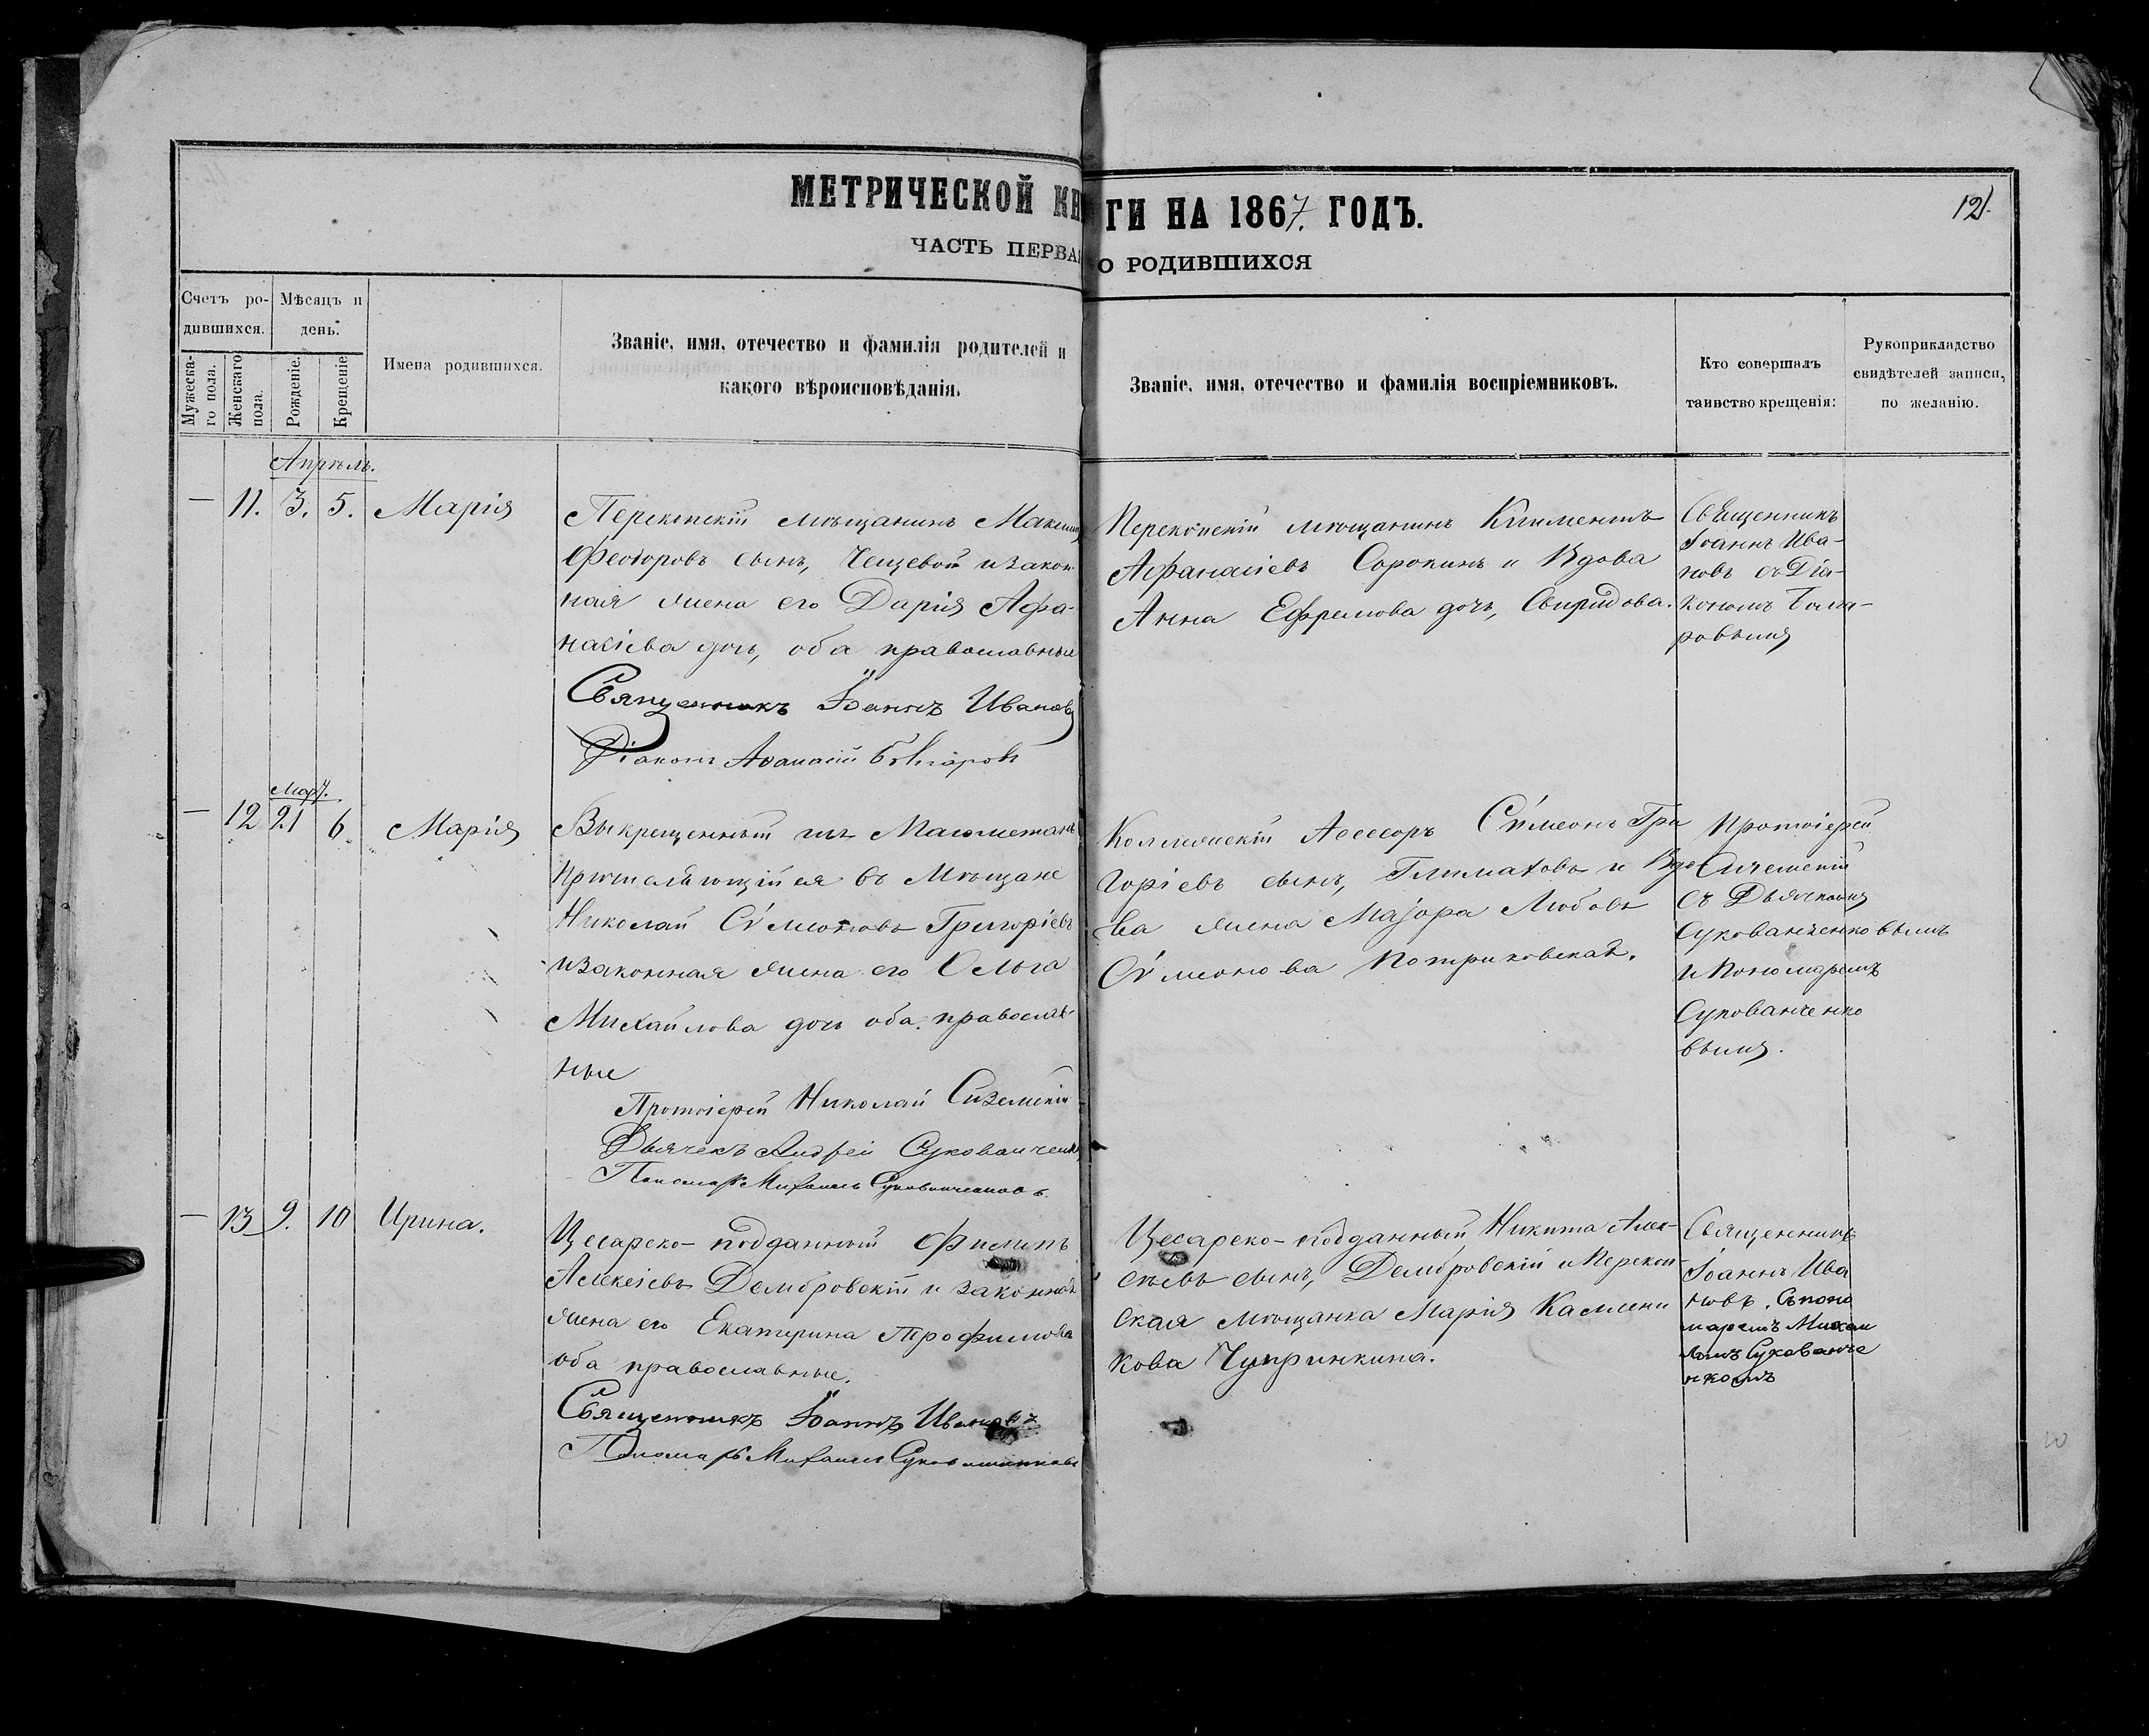 МЕТРИЧЕСКОЙ КНИГИ НА 1867. ГОДЪ.
12
ЧАСТЬ ПЕРВАЯ О РОДИВШИХСЯ
Счетъ ро-
дившихся.
Мужеска-
го пола.
Женскаго
пола.
Мѣсяцъ и
день.
Рожденіе.
Крещеніе
Имена родившихся.
Званіе, имя, отечество и фамилія родителей и
какого вѣроисповѣданія.
Званіе, имя, отечество и фамилія воспріемниковъ.
Кто совершалъ
таинство крещенія:
Рукоприкладство
свидѣтелей записи,
по желанію.
Апрѣль.
— 11. 3. 5. Марія
Перекопскій мѣщанинъ Максимъ
Феодоровъ сынъ, и закон-
ная жена его Дарія Афа-
насіева дочь, оба православные
Священникъ Іоаннъ Ивановъ
Діаконъ
Перекопскій мѣщанинъ Климентъ
Афанасіевъ Сорокинъ и Вдова
Анна Ефремова дочь, Свиридова.
Священникъ
Іоаннъ Ива-
новъ съ Діа-
кономъ
Март.
— 12 21 6. Марія
Выкрещенный изъ Магометанъ
Причисляющійся въ Мѣщане
Николай Сѵмеоновъ Григоріевъ
и законная жена его Ольга
Михайлова дочь оба православ-
ные
Протоіерей Николай
Дьячекъ Андрей
Пономарь Михаилъ
Коллежскій Асессоръ Сѵмеонъ Гри
горіевъ сынъ, и Вдо
ва жена Маіора Любовь
Сѵмеонова
Протоіерей
съ Дьячкомъ
Сукованченковымъ
и Пономаремъ
Сукованченко
вымъ.
— 13 9. 10 Ирина.
Цесарско-подданный Филипъ
Алексіевъ Дембровскій и законная
жена его Екатерина Трофимова
оба православные.
Священникъ Іоаннъ Ивановъ
Пономарь Михаилъ
Цесарско-подданный Никита Алек-
сѣевъ сынъ, Дембровскій и Перекоп-
ская мѣщанка Марія
кова Чупринкина.
Священникъ
Іоаннъ Ива
новъ. Съ поно
маремъ Михаи
ломъ Сукованче
нкомъ